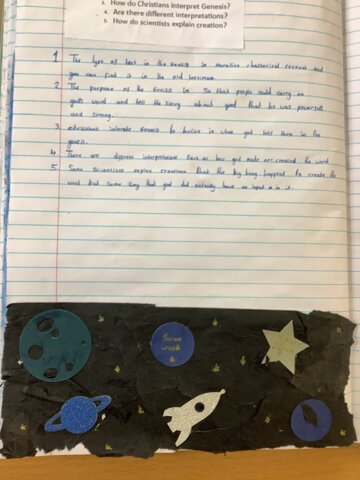 3. How do Christians interpret Genesis?
4. Are there different interpretations?
5. How do scientists explain creation?
1. The type of text in the Genesis is narrative / historical account and
you can find it in the old testiment.
2. The purpose of the Genesis is So that people could carry on
gods word and tell the story about god that he was powerfull
and strong.
3. christians interate Genesis to believe in what god has been in the
years.
4. There are different interpretations Such as how god made or created the word
5. Some Scientises explain creations that the big bang happed to create the
word but some say that god did actually have an input in it.